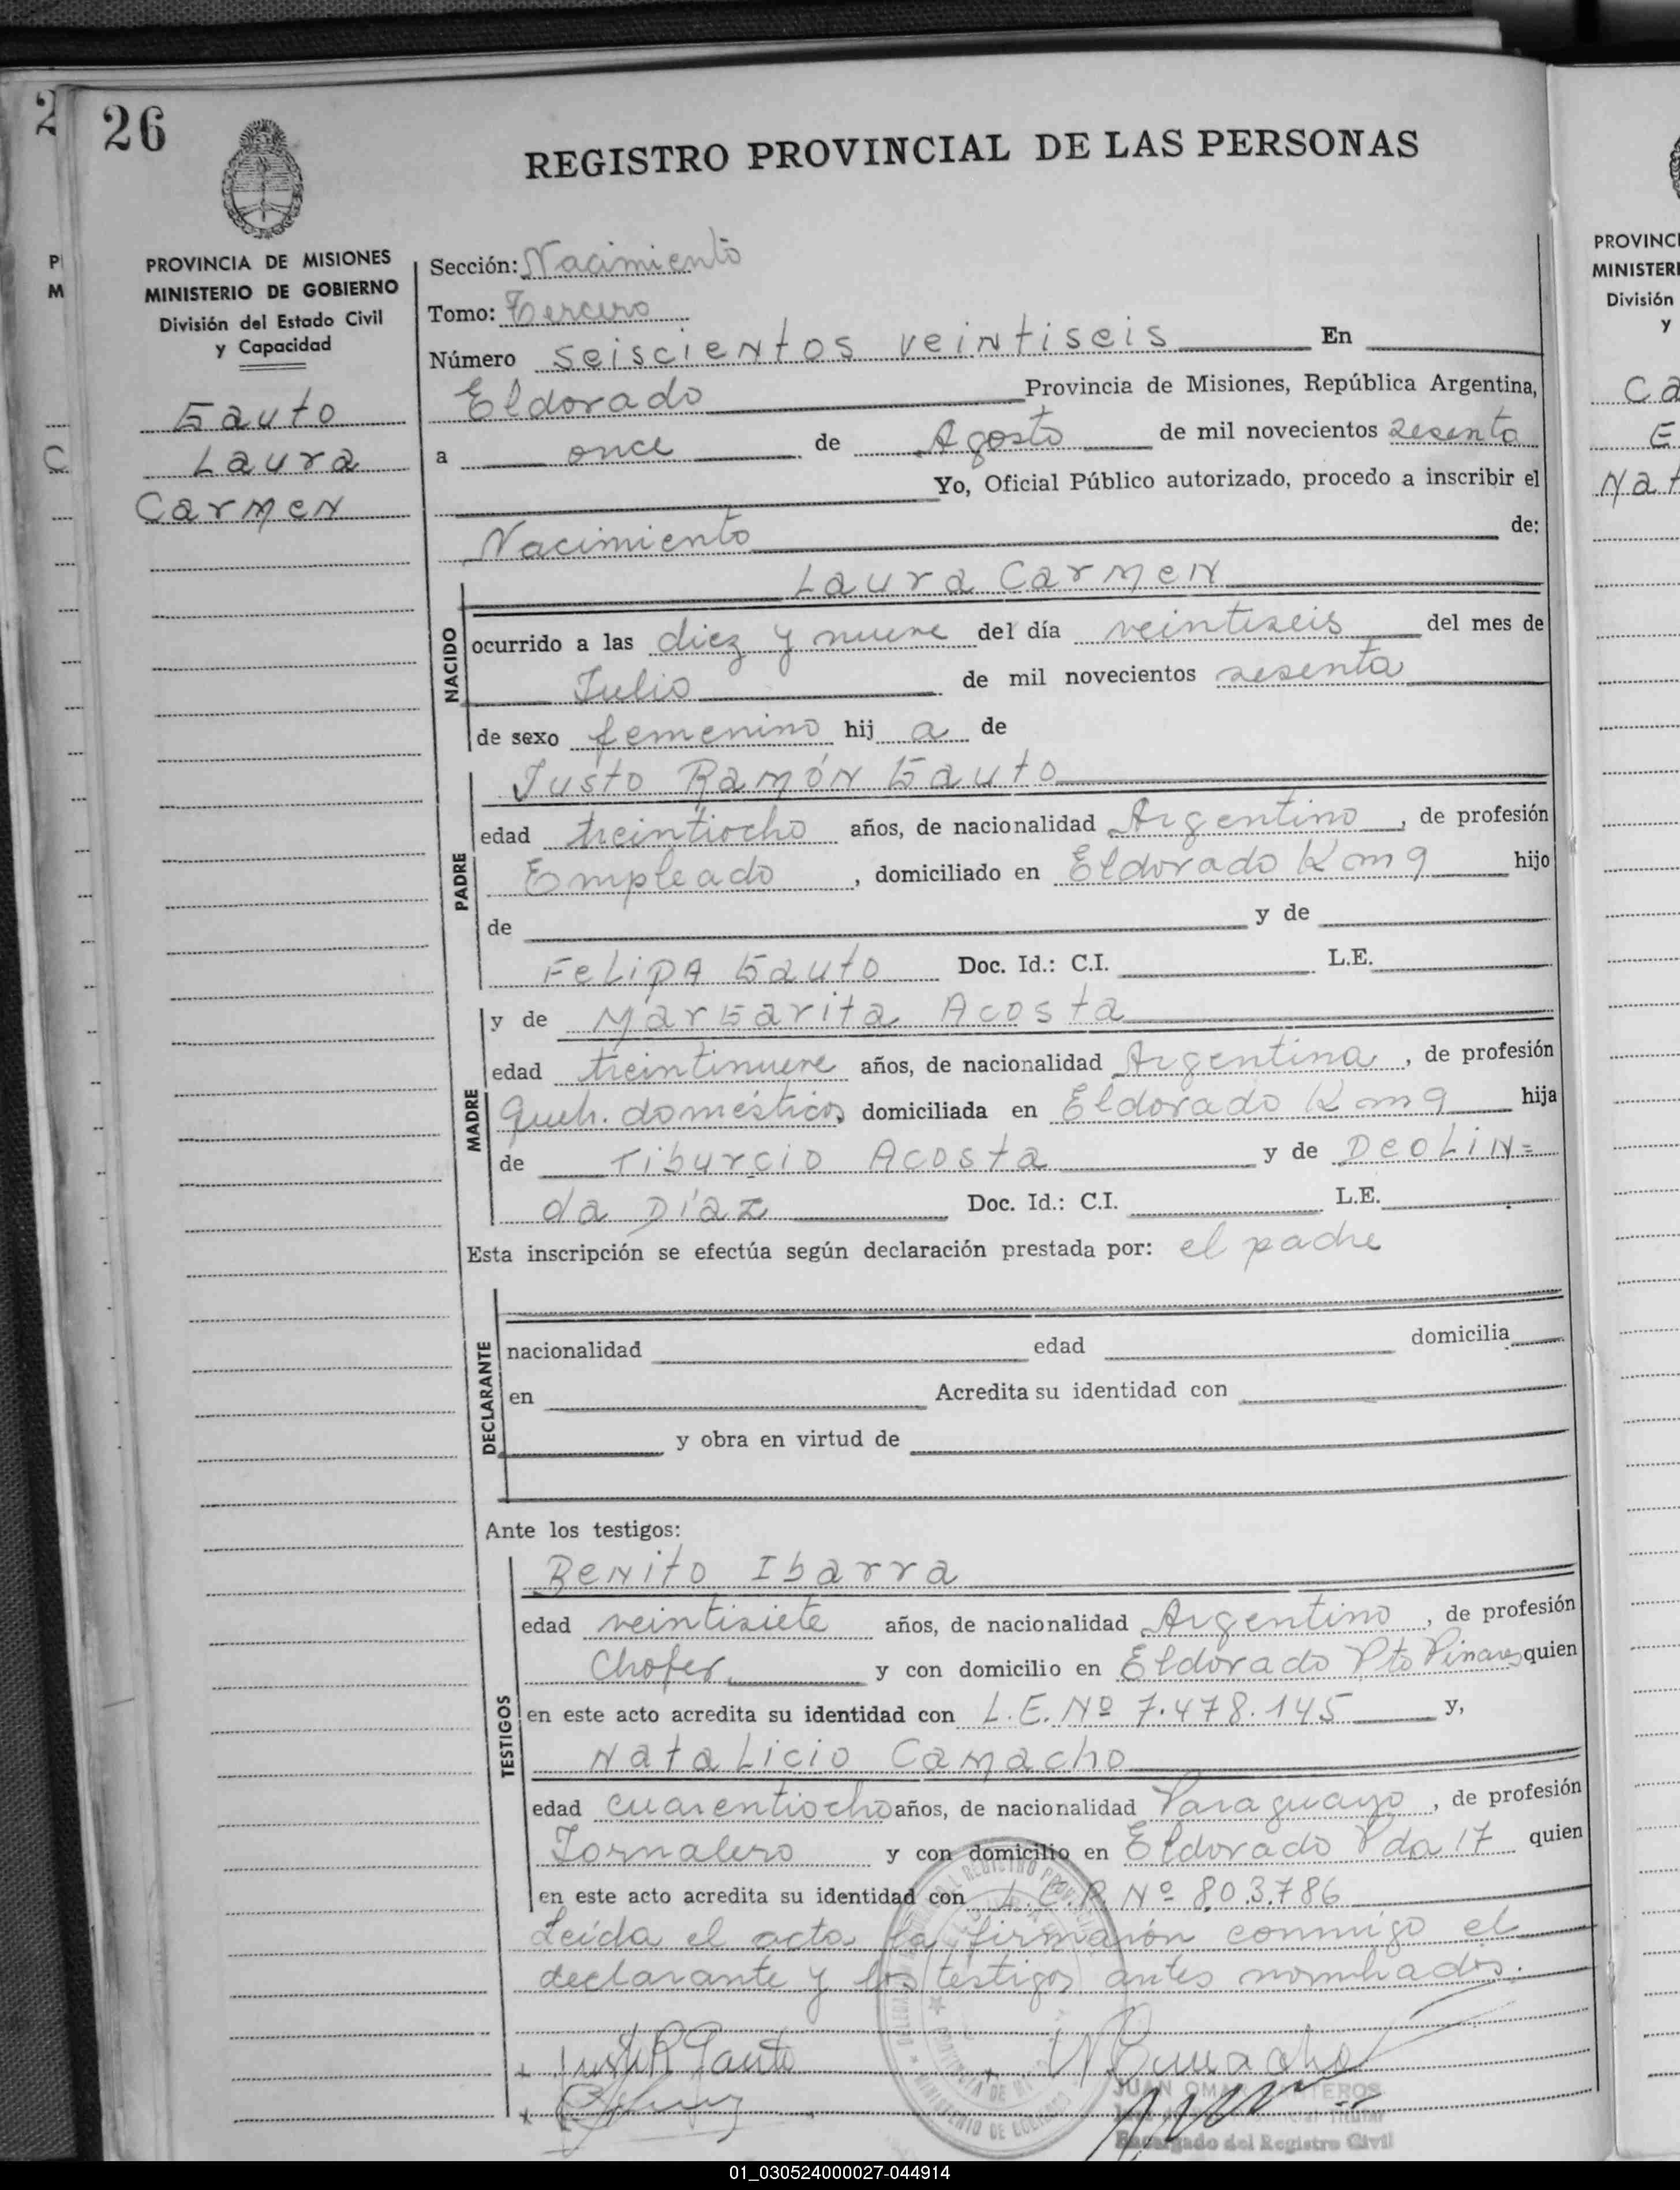 26
REGISTRO PROVINCIAL DE LAS PERSONAS
PROVINCIA DE MISIONES
MINISTERIO DE GOBIERNO
División del Estado Civil
y Capacidad
Gauto
Laura
Carmen
Sección: Nacimiento
Tomo: Tercero
Número seiscientos veintiseis En
Eldorado Provincia de Misiones, República Argentina,
a once de Agosto de mil novecientos sesenta
Yo, Oficial Público autorizado, procedo a inscribir el
Nacimiento de:
Laura Carmen
NACIDO
ocurrido a las diez y nueve del día veintiseis del mes de
Julio de mil novecientos sesenta
de sexo femenino hij a de
Justo Ramón Gauto
PADRE
edad treintiocho años, de nacionalidad Argentino, de profesión
Empleado, domiciliado en Eldorado Km 9 hijo
de y de
Felipa Gauto Doc. Id.: C.I. L.E.
y de Margarita Acosta
MADRE
edad treintinueve años, de nacionalidad Argentina, de profesión
Queh. domésticos domiciliada en Eldorado Km 9 hija
de Tiburcio Acosta y de Deolin=
da Díaz Doc. Id.: C.I. L.E.
Esta inscripción se efectúa según declaración prestada por: el padre
DECLARANTE
nacionalidad edad domicilia
en Acredita su identidad con
y obra en virtud de
Ante los testigos:
Benito Ibarra
TESTIGOS
edad veintisiete años, de nacionalidad Argentino, de profesión
Chofer y con domicilio en Eldorado Pto Pinares quien
en este acto acredita su identidad con L.E. Nº 7.478.145 y,
Natalicio Camacho
edad cuarentiocho años, de nacionalidad Paraguayo, de profesión
Jornalero y con domicilio en Eldorado Pda 17 quien
en este acto acredita su identidad con Nº 803.786
Leída el acta la firmarón conmigo el
declarante y los testigos antes nombrados.
Justo R Gauto
JUAN OMAR
Encargado del Registro Civil
PROVINCI
MINISTERI
División
y
Ca
E
Nat
01_030524000027-044914